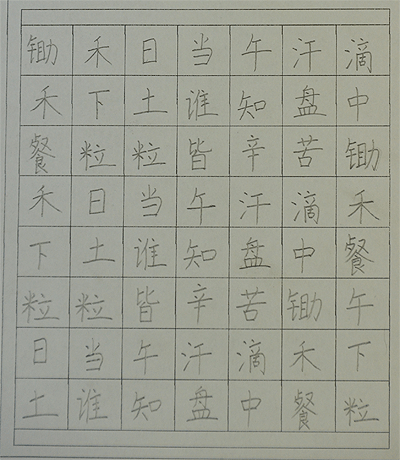 锄禾日当午汗滴
禾下土谁知盘中
餐粒粒皆辛苦锄
禾日当午汗滴禾
下土谁知盘中餐
粒粒皆辛苦锄午
日当午汗滴禾下
土谁知盘中餐粒